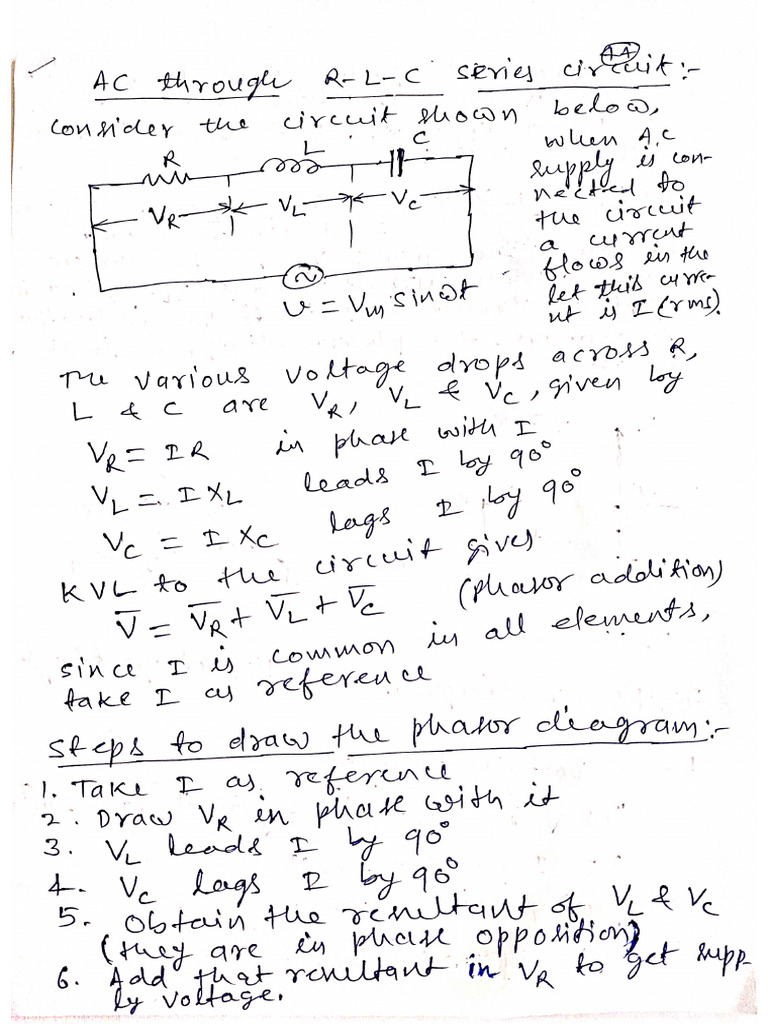 44
AC through R-L-C series circuit:-
consider the circuit shown below,
when A.C
supply is con-
nected to
the circuit
a current
flows in the
let this curre-
nt is I (rms).
R
L
C
VR
VL
VC
~
v = Vm sinωt
The various voltage drops across R,
L & C are VR, VL & VC, given by
VR = IR in phase with I
VL = IXL leads I by 90°
VC = IXC lags I by 90°
KVL to the circuit gives
V̅ = V̅R + V̅L + V̅C (phasor addition)
since I is common in all elements,
take I as reference
Steps to draw the phasor diagram:-
1. Take I as reference
2. Draw VR in phase with it
3. VL leads I by 90°
4. VC lags I by 90°
5. Obtain the resultant of VL & VC
(they are in phase opposition)
6. Add that resultant in VR to get supp-
ly voltage.